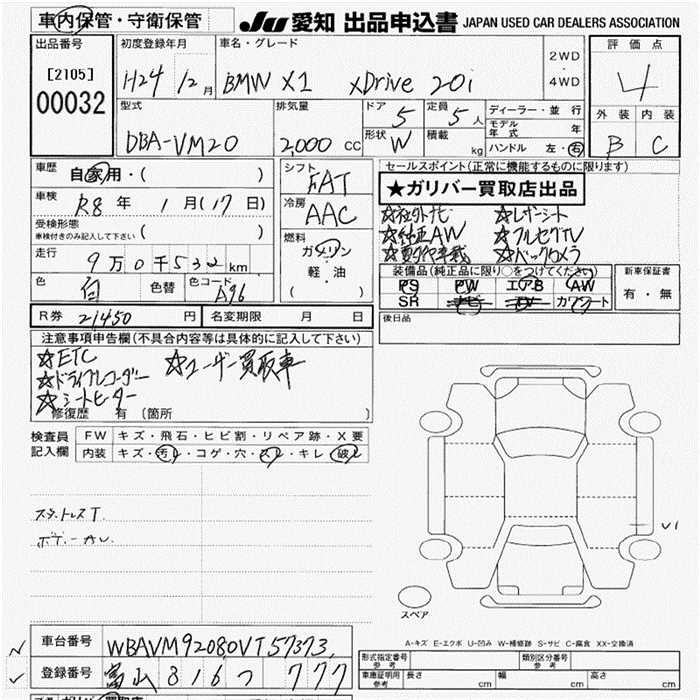 車内保管・守衛保管
JU 愛知 出品申込書 JAPAN USED CAR DEALERS ASSOCIATION
出品番号 [2105] 00032
初度登録年月 H24 12月
車名・グレード BMW X1 xDrive 20i
2WD・4WD
評価点 4
型式 DBA-VM20
排気量 2,000 cc
ドア 5 定員 5人
形状 W 積載 kg
ディーラー・並行
モデル年式 年
ハンドル 左・右
外装 B 内装 C
車歴 自家用・( )
車検 R8年 1月(17日)
受検形態 車検付きのみ記入して下さい ( )
走行 9万0千532km
色 白 色替 色コード A96
シフト FAT
冷房 AAC
燃料 ガソリン 軽・油 ( )
セールスポイント(正常に機能するものに限ります)
★ガリバー買取店出品
☆社外ナビ ☆レザーシート
☆純正AW ☆フルセグTV
☆バックカメラ
装備品(純正品に限り○をつけてください)
PS PW エアB AW
SR ナビ TV カワシート
新車保証書 有・無
R券 21450円 名変期限 月 日
後日品
注意事項申告欄(不具合内容等は具体的に記入して下さい)
☆ETC ☆ユーザー買取車
☆ドライブレコーダー
☆シートヒーター
修復歴 有 [箇所 ]
検査員記入欄 FW キズ・飛石・ヒビ割・リペア跡・X要
内装 キズ・汚レ・コゲ・穴・スレ・キレ・破レ
スタットレスT.
スペア
A-キズ E-エクボ U-凹み W-補修跡 S-サビ C-腐食 XX-交換済
車台番号 WBAVM92080VT57373
登録番号 富山 316 つ 777
形式指定番号 参考 類別区分番号 参考
車庫証明用 参考 長さ cm 幅 cm 高さ cm